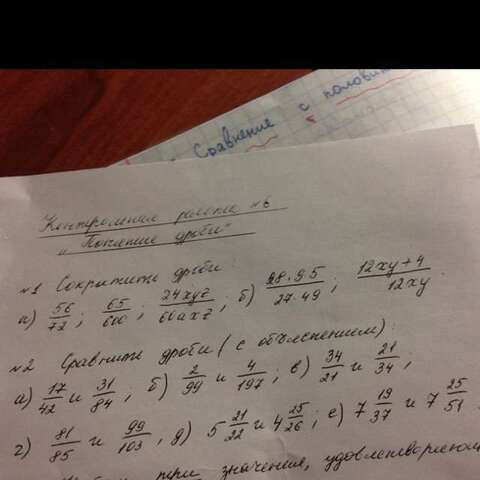 Сравнение с половин
Контрольная работа №6
„Понятие дроби"
№1 Сократить дроби:
а) 56/72; 65/600; 24xyz/60axz; б) 28·95/27·49; 12xy+4/12xy.
№2 Сравнить дроби (с объяснением):
а) 17/42 и 31/84; б) 2/99 и 4/197; в) 34/21 и 21/34;
г) 81/85 и 99/103, д) 5 21/22 и 4 25/26; е) 7 19/37 и 7 25/51.
три значения, удовлетворяющ